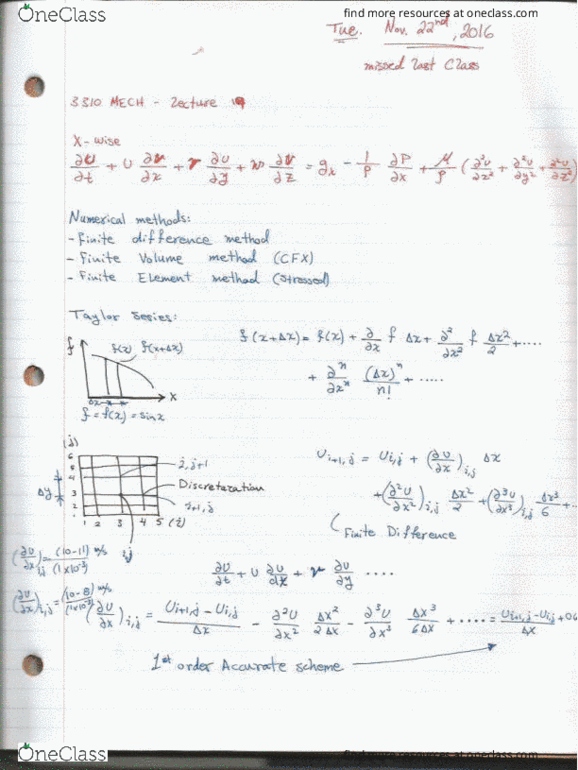 OneClass
find more resources at oneclass.com
Tue. Nov. 22nd, 2016
missed last class
3310 MECH - Lecture 19
X-wise
∂u/∂t + U ∂u/∂x + v ∂u/∂y + w ∂u/∂z = gx - 1/ρ ∂P/∂x + μ/ρ (∂²u/∂x² + ∂²u/∂y² + ∂²u/∂z²)
Numerical methods:
- Finite difference method
- Finite Volume method (CFX)
- Finite Element method (Stressed)
Taylor series:
f(x+Δx) = f(x) + ∂/∂x f Δx + ∂²/∂x² f Δx²/2 + ....
+ ∂ⁿ/∂xⁿ (Δx)ⁿ/n! + .....
f
f(x) f(x+Δx)
Δx
x
f = f(x) = sinx
(j)
6
5
4
3
2
1
Δy
i,j+1
Discreteration
i+1,j
1 2 3 4 5 (i)
i,j
Ui+1,j = Ui,j + (∂U/∂x)i,j Δx
+ (∂²U/∂x²)i,j Δx²/2 + (∂³U/∂x³)i,j Δx³/6 + ..
Finite Difference
(∂U/∂x)i,j = (10-11) m/s / (1x10⁻³)
∂U/∂t + U ∂U/∂x + v ∂U/∂y ....
(∂U/∂x)i,j = (10-8) m/s / (1x10⁻³)
(∂U/∂x)i,j = Ui+1,j - Ui,j / Δx - ∂²U/∂x² Δx²/2Δx - ∂³U/∂x³ Δx³/6Δx + .... = Ui+1,j - Ui,j / Δx + O
1st order Accurate scheme
OneClass
find more resources at oneclass.com